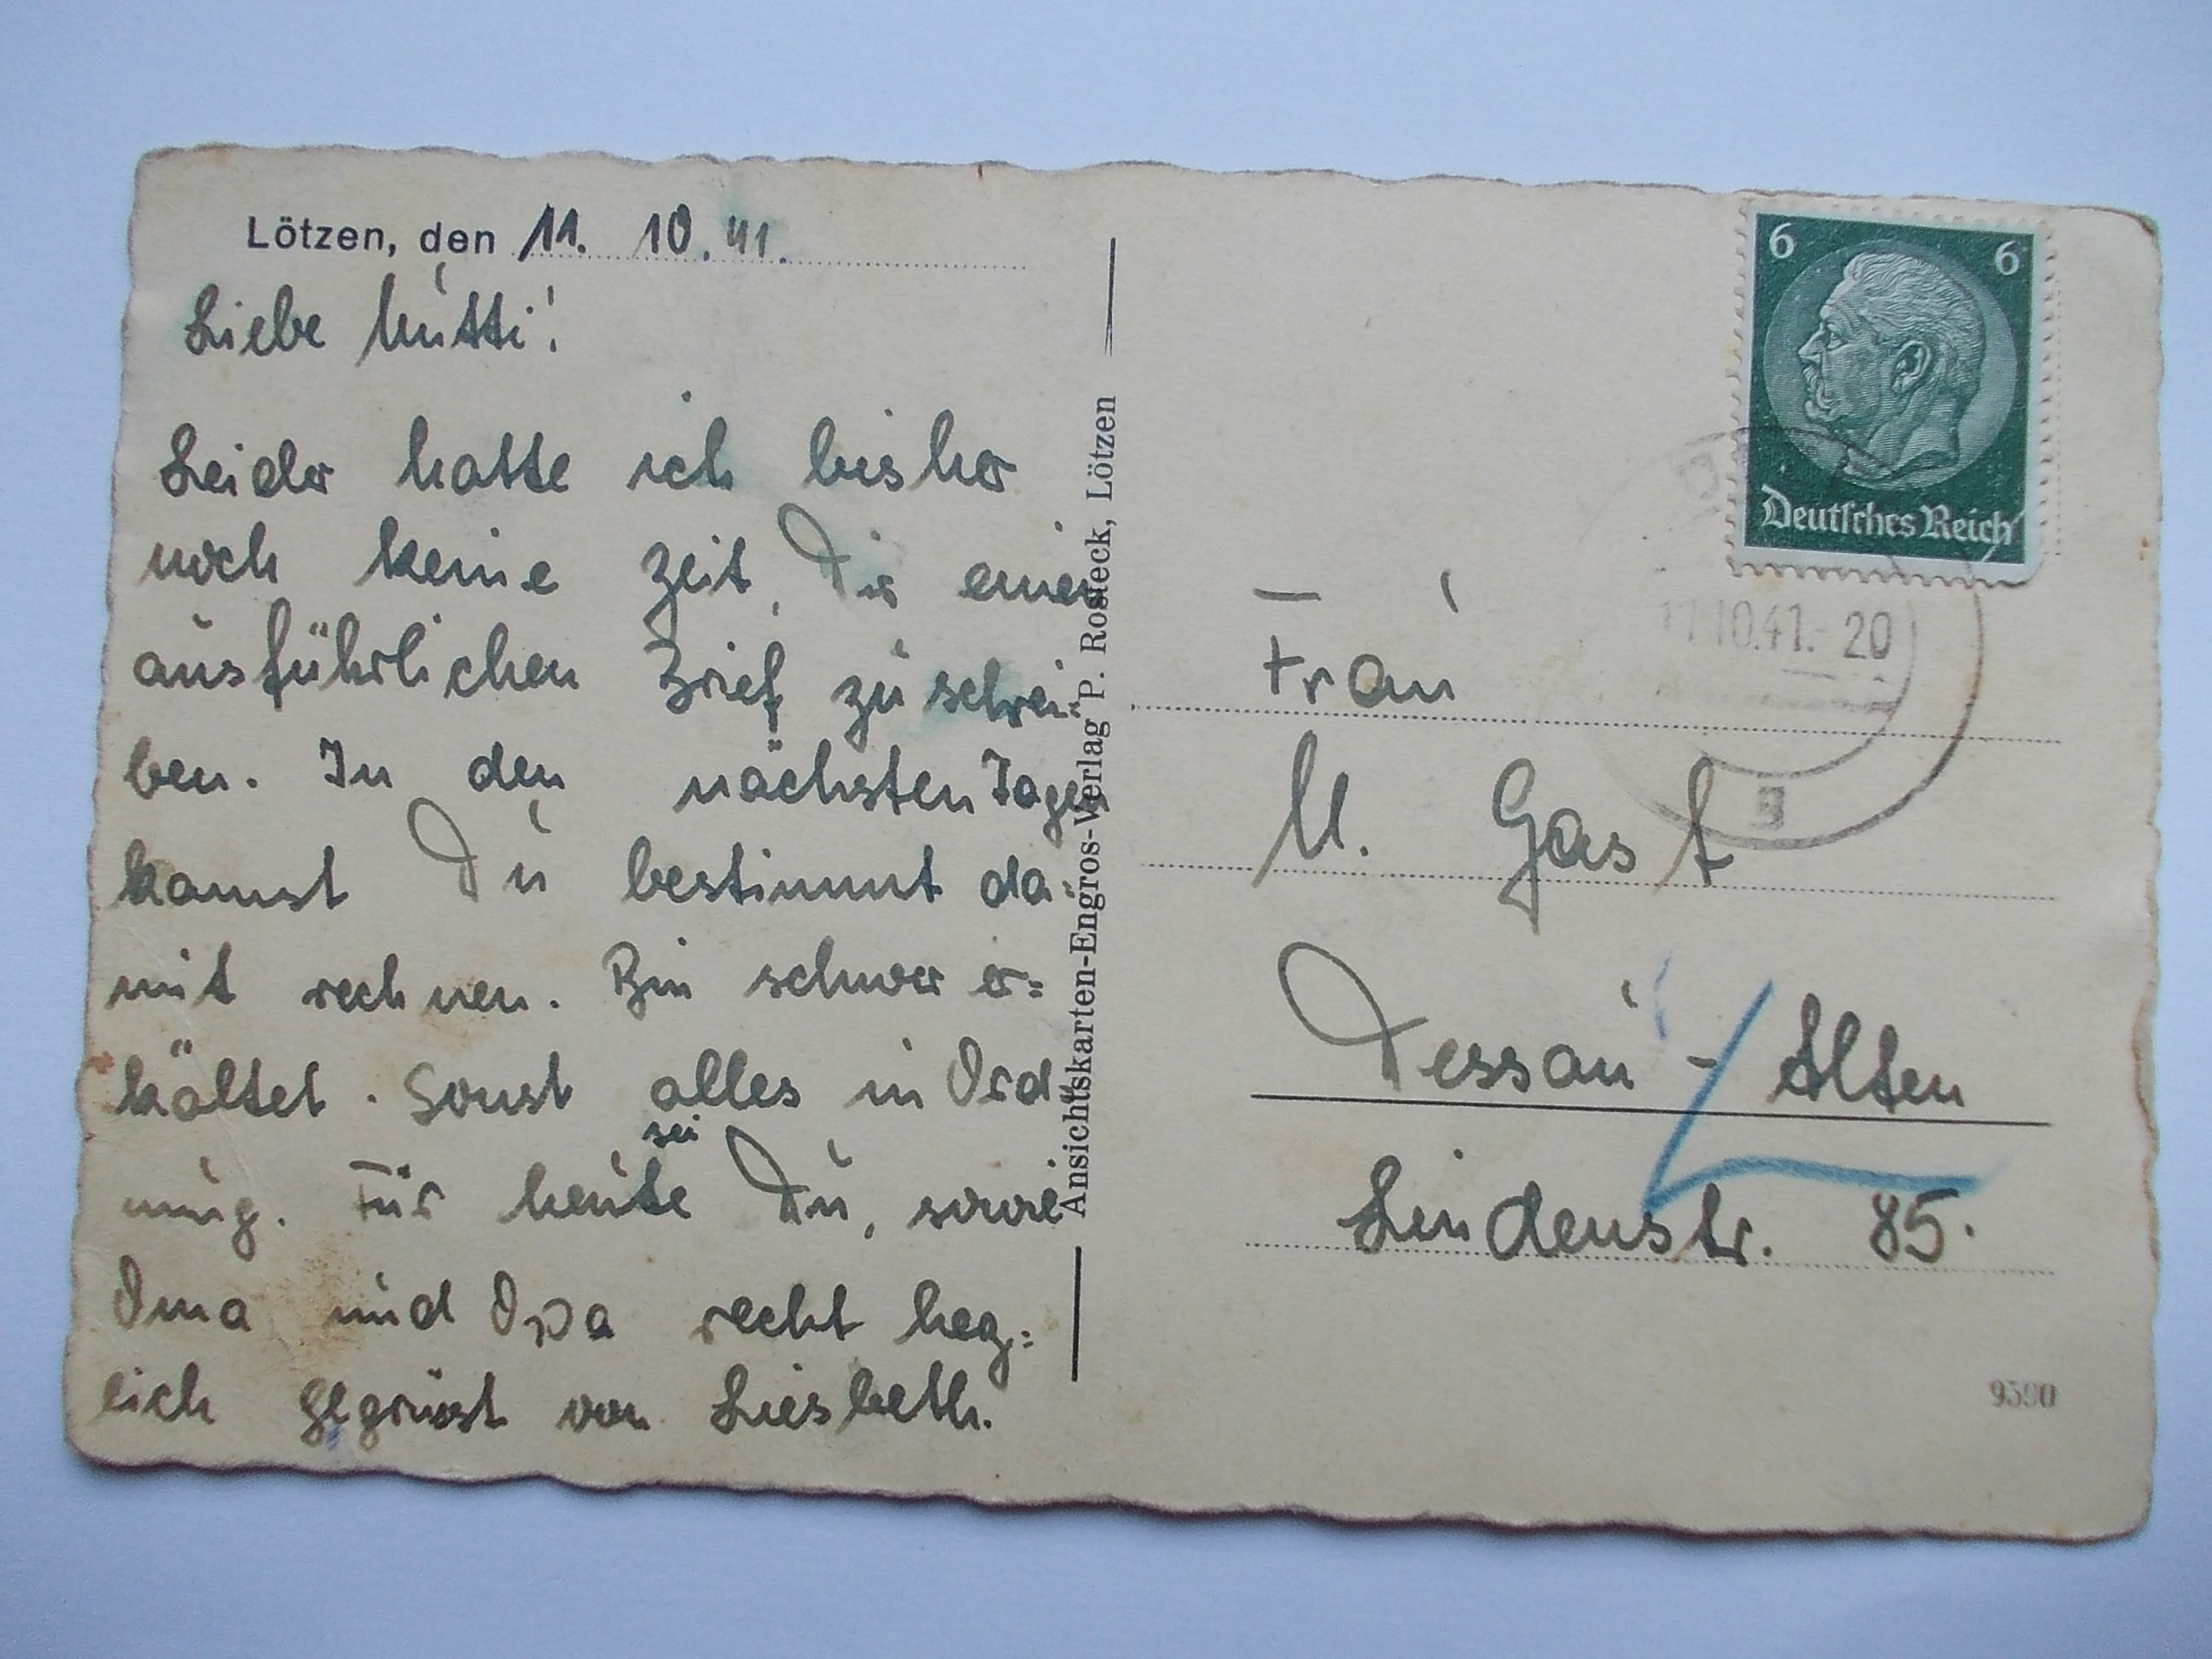 Lötzen, den 11. 10. 41.
Liebe Mutti!
Leider hatte ich bisher
noch keine Zeit, Dir einen
ausführlichen Brief zu schrei-
ben. In den nächsten Tagen
kannst Du bestimmt da=
mit rechnen. Bin schwer er=
kältet. Sonst alles in Ord
nung. Für heute sei Du, sowie
Oma und Opa recht herz=
lich gegrüsst von Liesbeth.
Ansichtskarten-Engros-Verlag P. Rosteck, Lötzen
6 6
Deutsches Reich
11.10.41.-20
a
Frau
M. Gast
Dessau - Alten
Lindenstr. 85.
9390